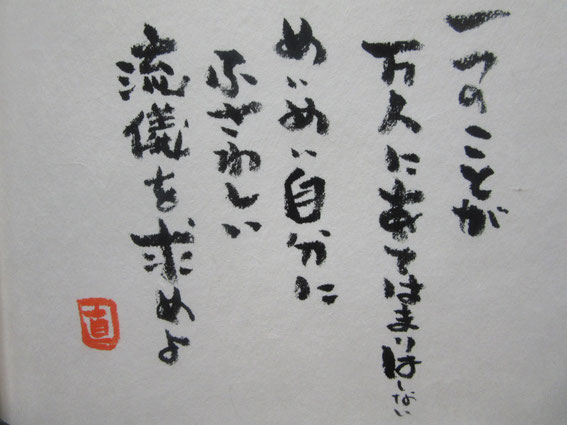 一つのことが
万人にあてはまりはしない
めいめい自分に
ふさわしい
流儀を求めよ
直